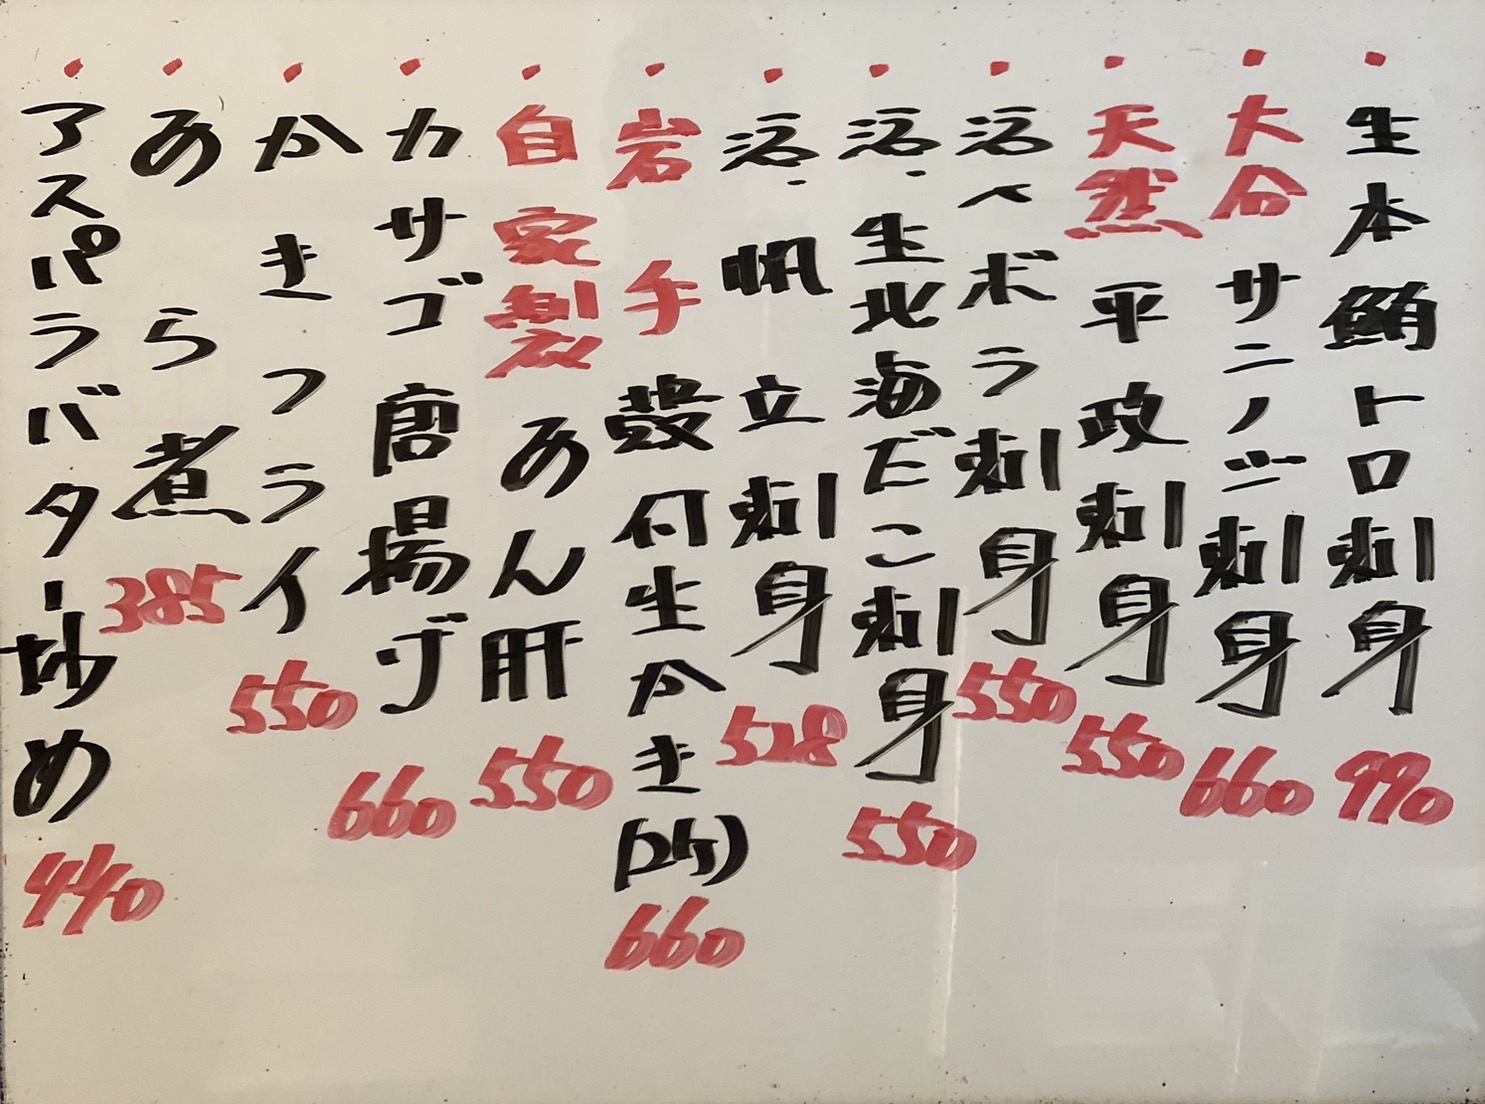 ・生本鮪トロ刺身 990
・大分サニノジ刺身 660
・天然平政刺身 550
・活〆ボラ刺身 550
・活・生北海だこ刺身 550
・活・帆立刺身 528
・岩手殻付生かき(2ケ) 660
・自家製あん肝 550
・カサゴ唐揚げ 660
・かきフライ 550
・あら煮 385
・アスパラバター炒め 440